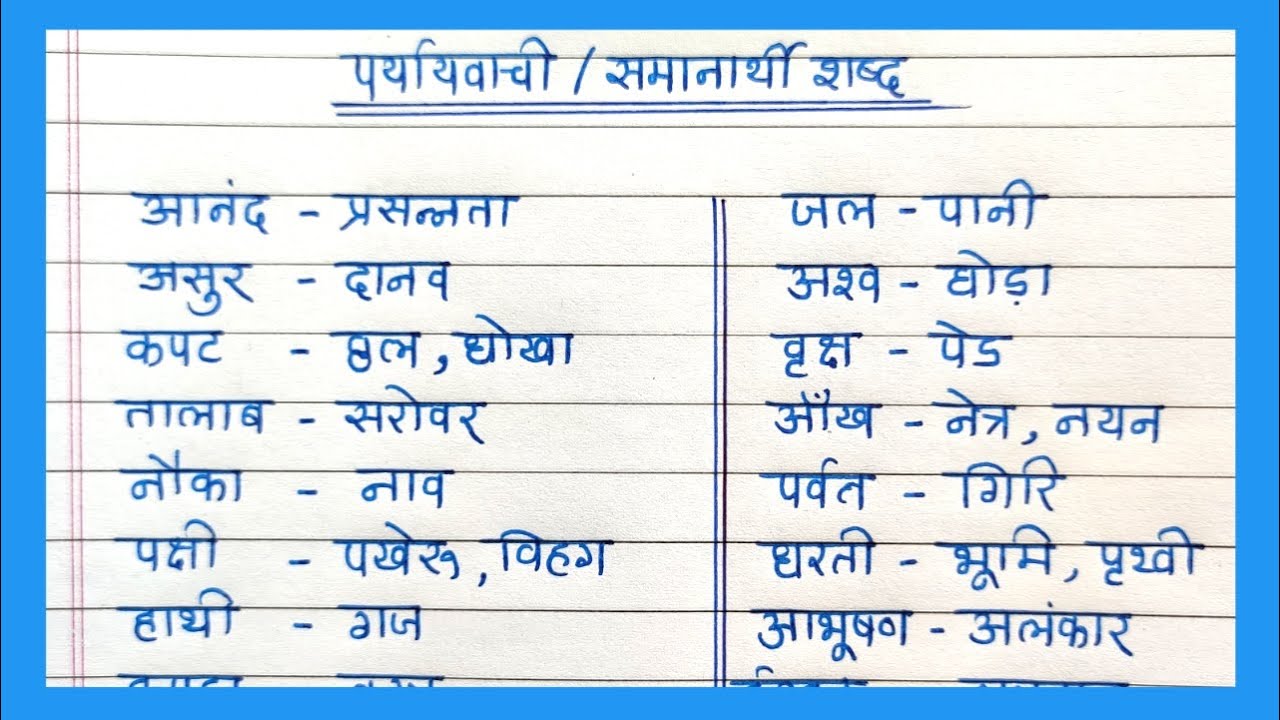 पर्यायवाची / समानार्थी शब्द
आनंद - प्रसन्नता
असुर - दानव
कपट - छल, धोखा
तालाब - सरोवर
नौका - नाव
पक्षी - पखेरू, विहग
हाथी - गज
जल - पानी
अश्व - घोड़ा
वृक्ष - पेड
आँख - नेत्र, नयन
पर्वत - गिरि
धरती - भूमि, पृथ्वी
आभूषण - अलंकार